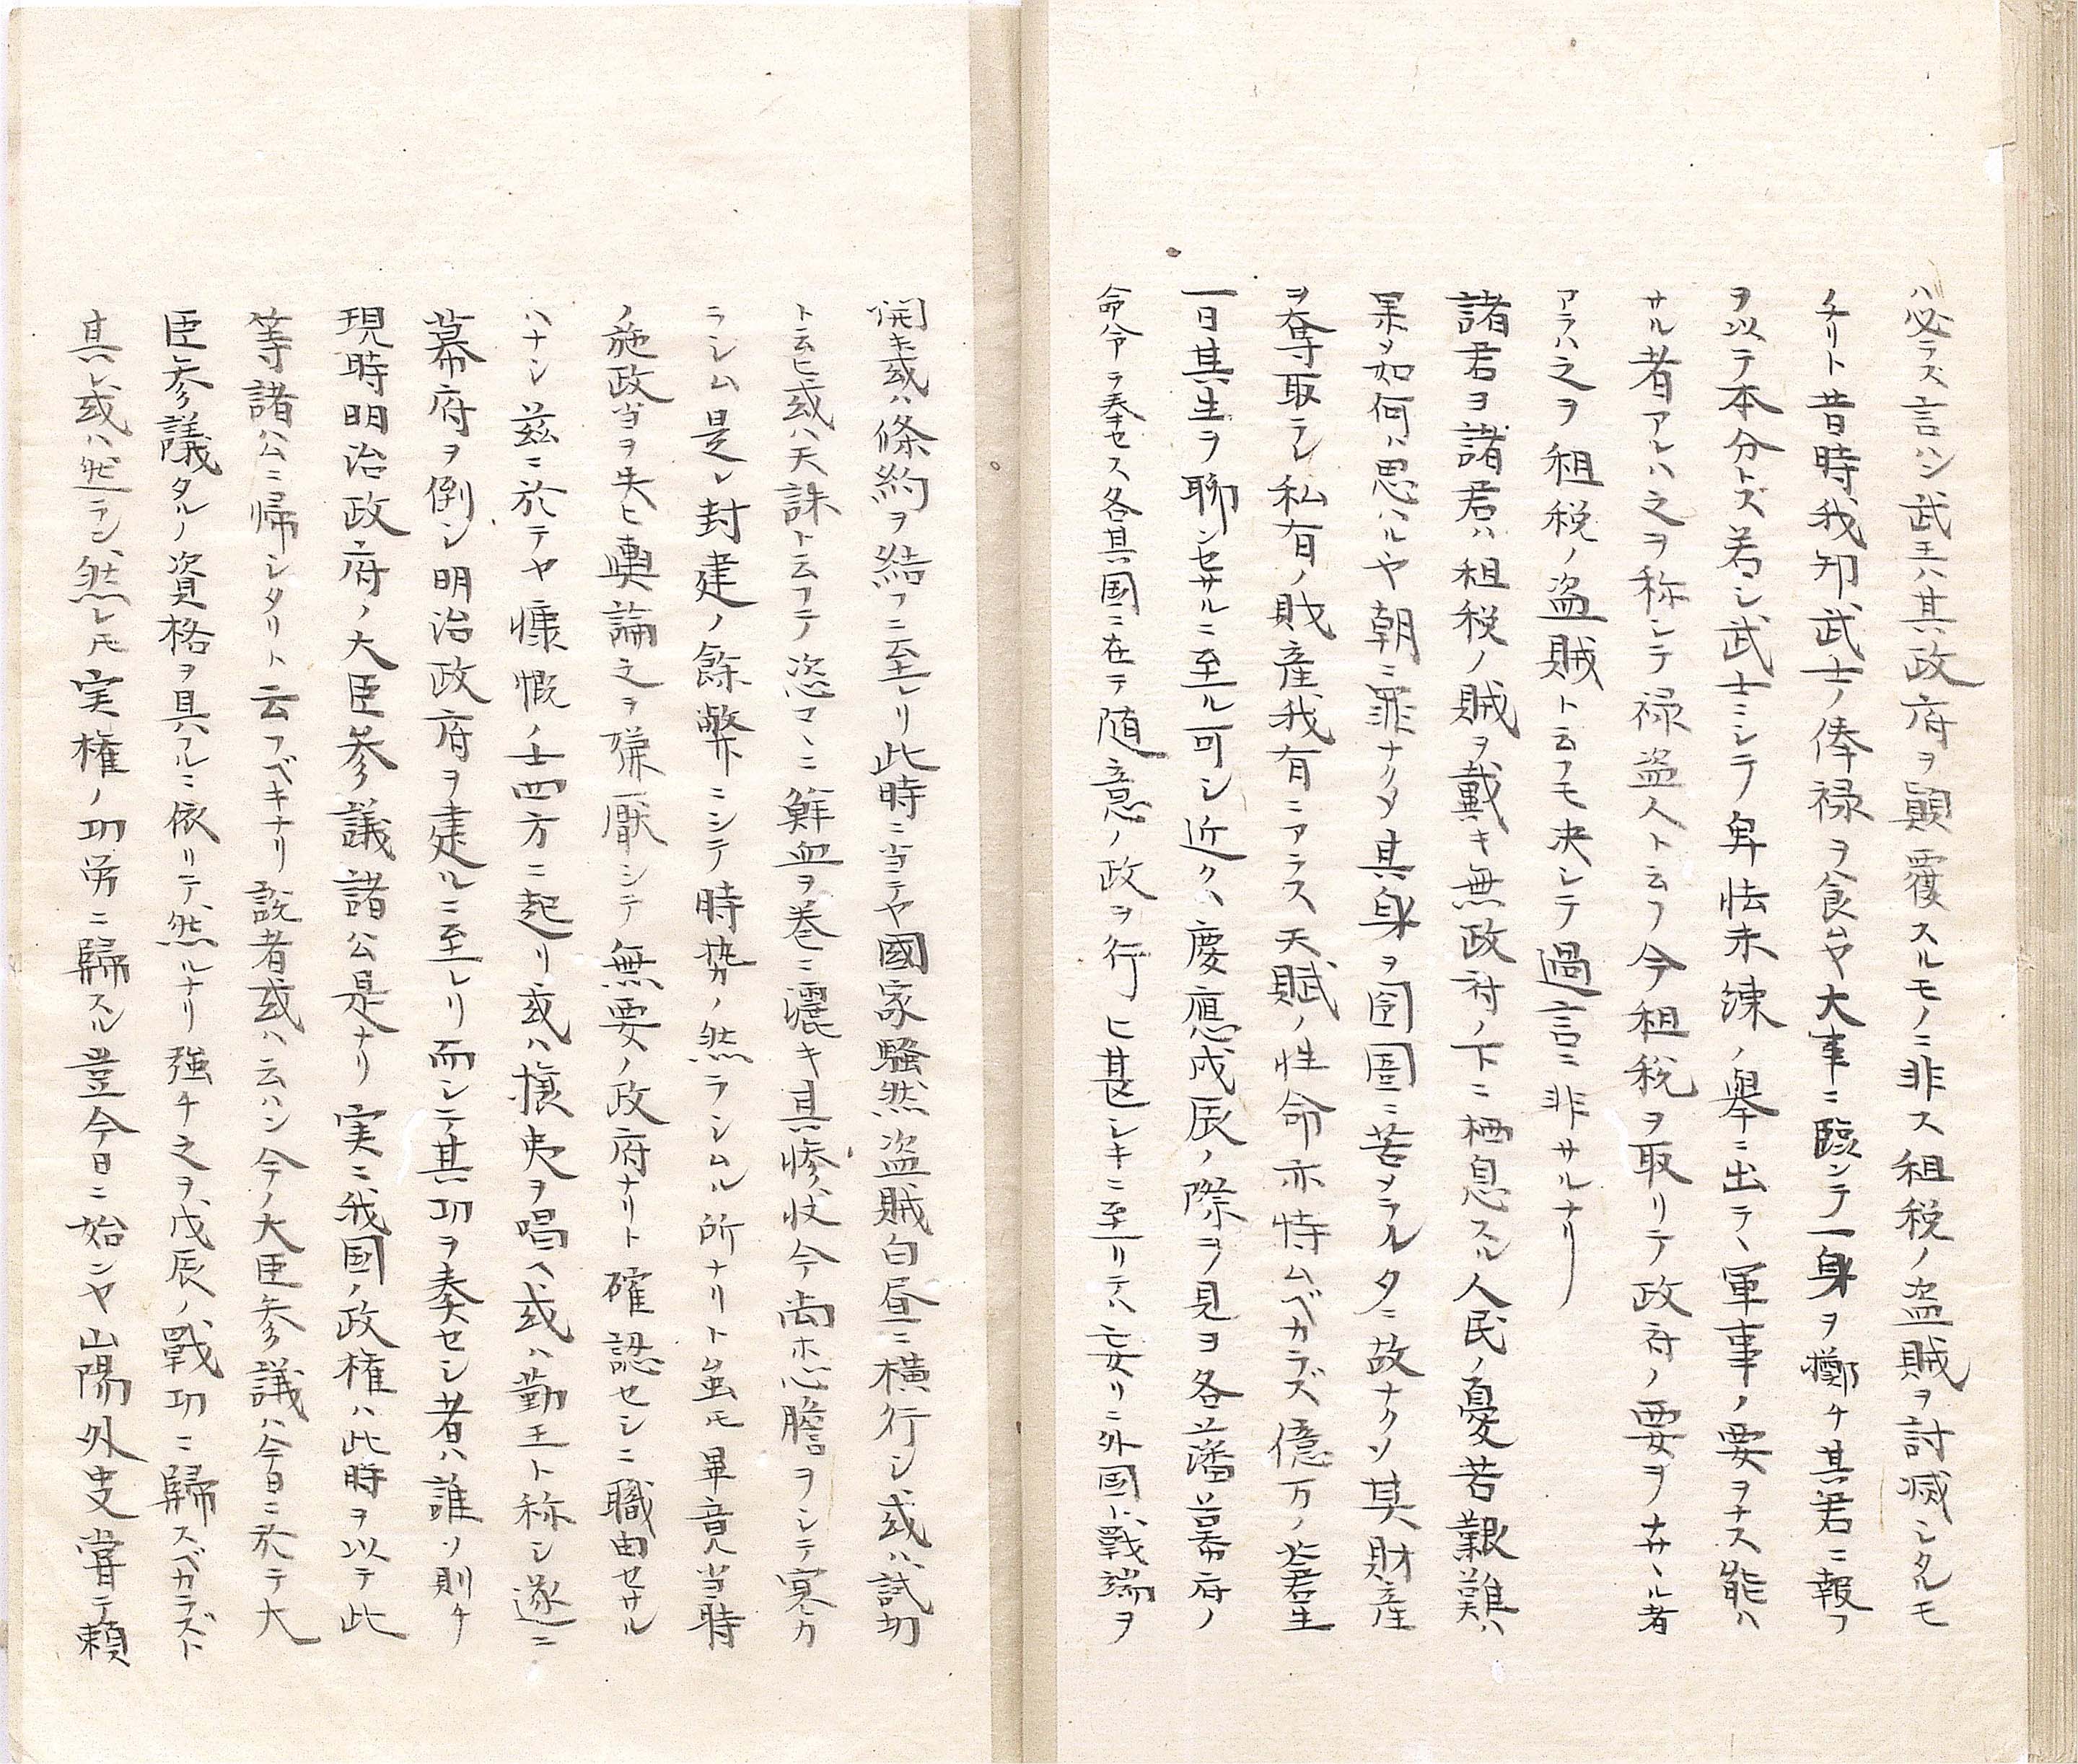 ハ必ラス言ハン武王ハ其政府ヲ顚覆スルモノニ非ス租税ノ盗賊ヲ討滅シタルモ
ノナリト昔時我邦武士ノ俸禄ヲ食ムヤ大事ニ臨ンテ一身ヲ擲チ其君ニ報フ
ヲ以テ本分トス若シ武士ニシテ卑怯未練ノ挙ニ出テ、軍事ノ要ヲナス能ハ
サル者アルハ之ヲ称シテ禄盗人ト云フ今租税ヲ取リテ政府ノ要ヲナサヽル者
アラハ之ヲ租税ノ盗賊ト云フモ决シテ過言ニ非サルナリ
諸君ヨ諸君ハ租税ノ賊ヲ戴キ無政府ノ下ニ栖息スル人民ノ憂苦艱難ハ
果メ如何ハ思ハルヤ朝ニ罪ナクメ其身ヲ囹圄ニ苦メラルタニ故ナクソ其財産
ヲ奪取ラレ私有ノ財産我有ニアラス天賦ノ性命亦恃ムベカラズ億万ノ蒼生
一日其生ヲ聊ンセサルニ至ル可シ近クハ慶應戊辰ノ際ヲ見ヨ各藩幕府ノ
命令ヲ奉セス各其国ニ在テ随意ノ政ヲ行ヒ甚シキニ至リテハ妄リニ外國ト戰端ヲ
開キ或ハ條約ヲ結フニ至レリ此時ニ当テヤ國家騒然盗賊白昼ニ横行シ或ハ試切
ト云ヒ或ハ天誅ト云フテ恣マヽニ鮮血ヲ巷ニ灑キ其惨状今尚ホ心膽ヲシテ寒カ
ラシム是レ封建ノ餘弊ニシテ時勢ノ然ラシムル所ナリト虽モ畢竟当時
ノ施政当ヲ失ヒ輿論之ヲ嫌厭シテ無要ノ政府ナリト確認セシニ職由セサル
ハナシ茲ニ於テヤ慷慨ノ士四方ニ起リ或ハ攘夷ヲ唱ヘ或ハ勤王ト称シ遂ニ
幕府ヲ倒シ明治政府ヲ建ルニ至レリ而シテ其功ヲ奏セシ者ハ誰ソ則チ
現時明治政府ノ大臣参議諸公是ナリ実ニ我国ノ政権ハ此時ヲ以テ此
等諸公ニ帰シタリト云フベキナリ説者或ハ云ハン今ノ大臣参議ハ今日ニ於テ大
臣参議タルノ資格ヲ具フルニ依リテ然ルナリ強チ之ヲ戊辰ノ戰功ニ歸スベカラズト
其レ或ハ然ラン然レモ実権ノ功労ニ歸スル豈今日ニ始ンヤ山陽外史嘗テ頼